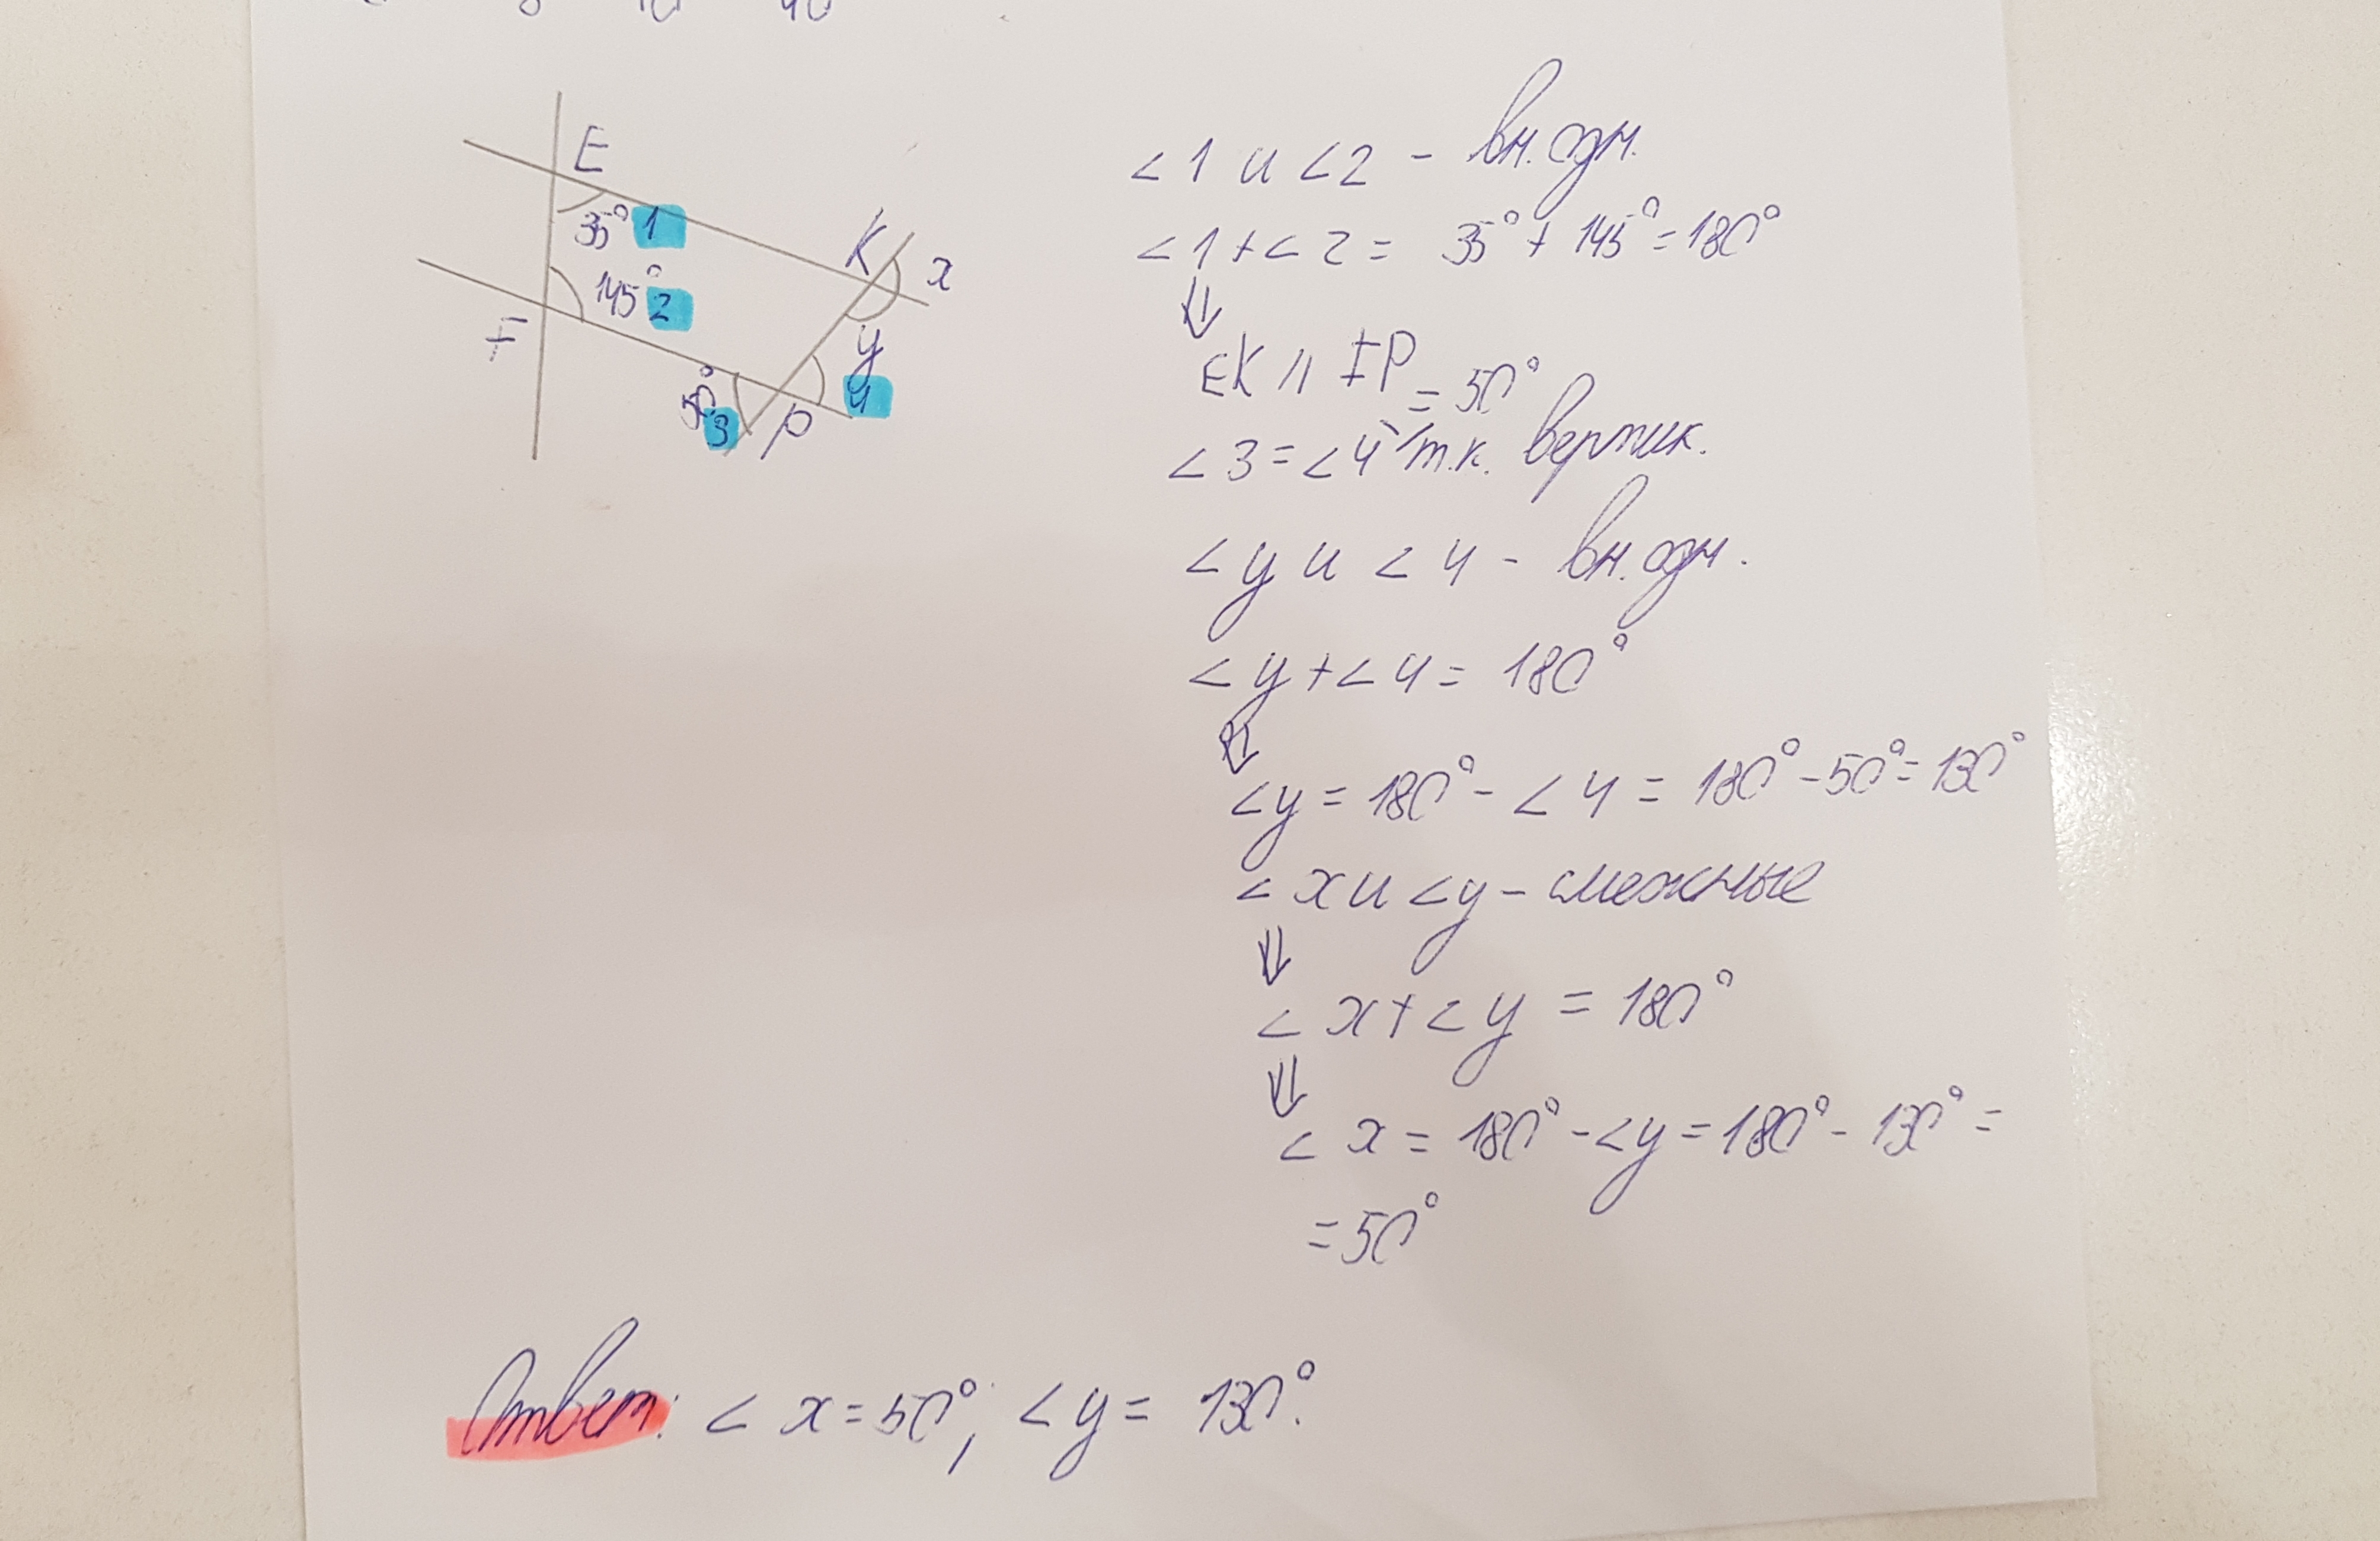 E
35° 1
K
x
145° 2
F
y
50°
3
4
P
∠1 и ∠2 - вн. одн.
∠1 + ∠2 = 35° + 145° = 180°
⇓
EK || FP
= 50°
∠3 = ∠4, т.к. вертик.
∠y и ∠4 - вн. одн.
∠y + ∠4 = 180°
⇓
∠y = 180° - ∠4 = 180° - 50° = 130°
∠x и ∠y - смежные
⇓
∠x + ∠y = 180°
⇓
∠x = 180° - ∠y = 180° - 130° =
= 50°
Ответ: ∠x = 50°; ∠y = 130°.